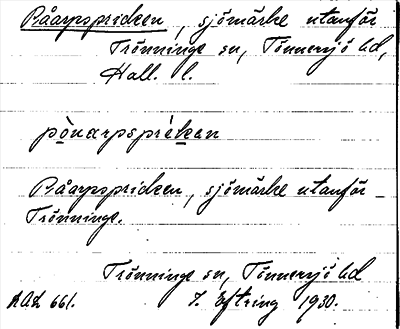 Råarpspricken, sjömärke utanför
Trönninge sn, Tönnersjö hd,
Hall. l.
pònarpspriken
Råarpspricken, sjömärke utanför
Trönninge.
Trönninge sn, Tönnersjö hd
RAÄ 661. J. Eftring 1930.